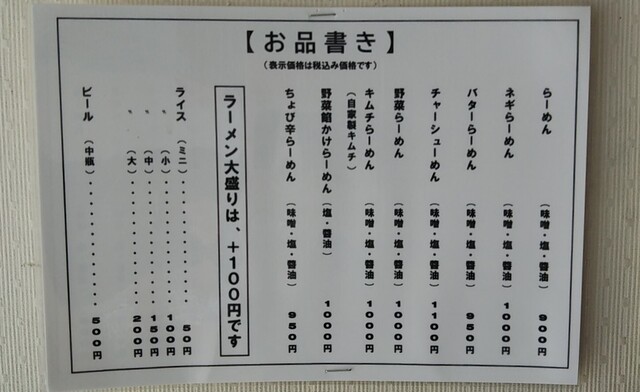 【お品書き】
(表示価格は税込み価格です)
らーめん (味噌・塩・醤油) 900円
ネギらーめん (味噌・塩・醤油) 1000円
バターらーめん (味噌・塩・醤油) 950円
チャーシューめん (味噌・塩・醤油) 1100円
野菜らーめん (味噌・塩・醤油) 1000円
キムチらーめん (味噌・塩・醤油) 1000円
(自家製キムチ)
野菜餡かけらーめん (塩・醤油) 1000円
ちょび辛らーめん (味噌・塩・醤油) 950円
ラーメン大盛りは、+100円です
ライス (ミニ)・・・・・・・・・・・ 50円
〃 (小)・・・・・・・・・・・ 100円
〃 (中)・・・・・・・・・・・ 150円
〃 (大)・・・・・・・・・・・ 200円
ビール (中瓶)・・・・・・・・・・・ 500円